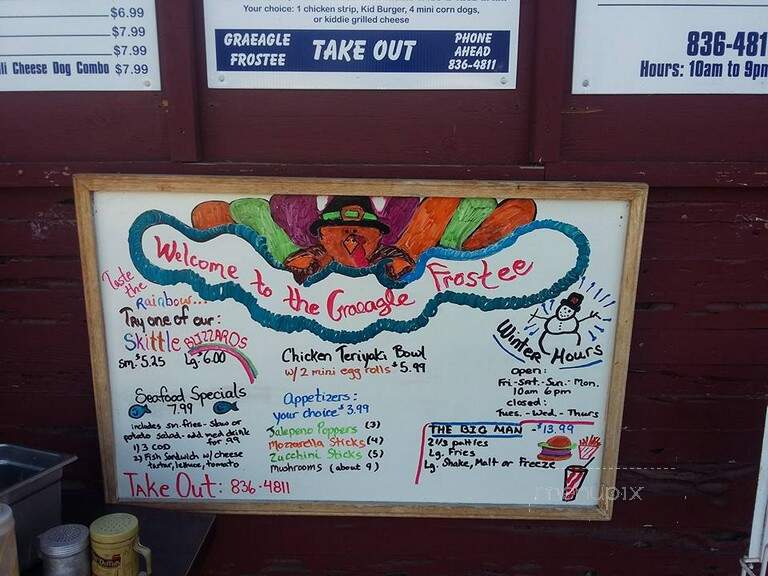 $6.99
$7.99
$7.99
Cheese Dog Combo $7.99
Your choice: 1 chicken strip, Kid Burger, 4 mini corn dogs,
or kiddie grilled cheese
GRAEAGLE FROSTEE
TAKE OUT
PHONE AHEAD
836-4811
836-481
Hours: 10am to 9pm
Welcome to the Graeagle Frostee
Taste
the
Rainbow...
Try one of our:
Skittle BLIZZARDS
sm. $5.25 Lg. $6.00
Seafood Specials
7.99
includes sm. fries - slaw or
potato salad - add med drink
for .99
1) 3 COD
2) Fish Sandwich w/ cheese
tartar, lettuce, tomato
Take Out: 836-4811
Chicken Teriyaki Bowl
w/ 2 mini egg rolls $5.99
Appetizers:
your choice $3.99
Jalepeno Poppers (3)
Mozzarella Sticks (4)
Zucchini Sticks (5)
Mushrooms (about 9)
Winter Hours
open:
Fri.-Sat.-Sun.-Mon.
10am 6pm
closed:
Tues.-Wed-Thurs
THE BIG MAN - $13.99
2 1/3 patties
Lg. Fries
Lg. Shake, Malt or Freeze
menupix